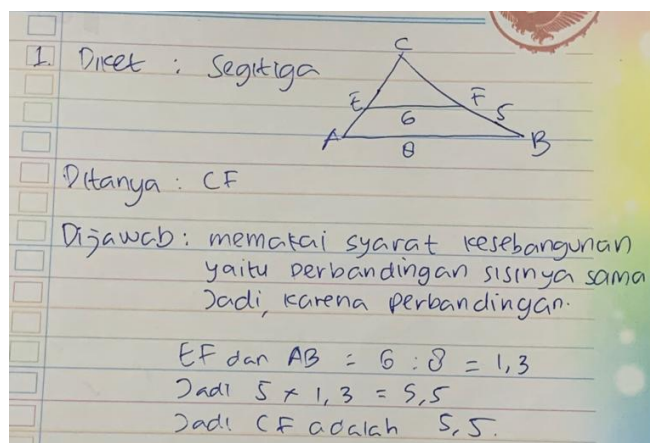 C
1. Diket : Segitiga
E F
6 5
A B
8
Ditanya : CF
Dijawab : memakai syarat kesebangunan
yaitu perbandingan sisinya sama
Jadi, karena perbandingan.
EF dan AB = 6 : 8 = 1,3
Jadi 5 × 1,3 = 5,5
Jadi CF adalah 5,5.